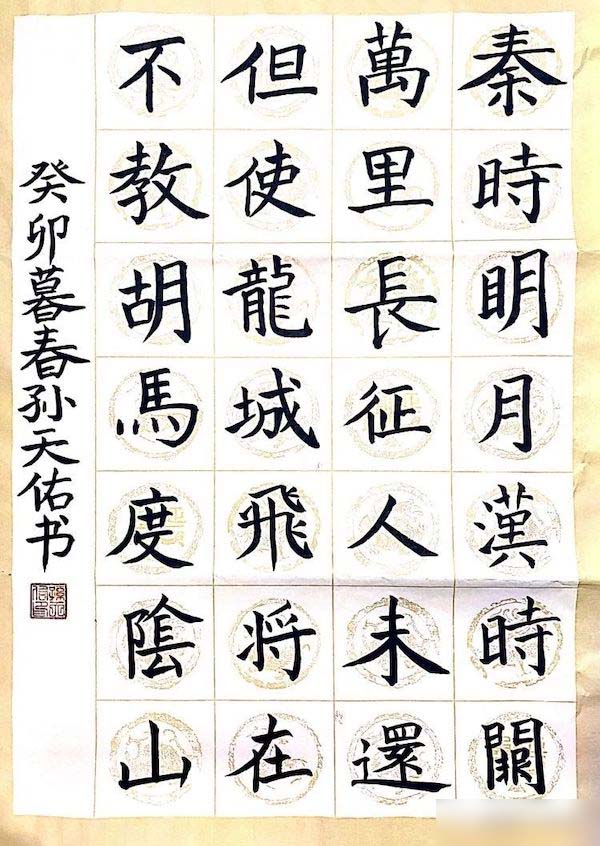 秦時明月漢時關
萬里長征人未還
但使龍城飛将在
不教胡馬度陰山
癸卯暮春孙天佑书